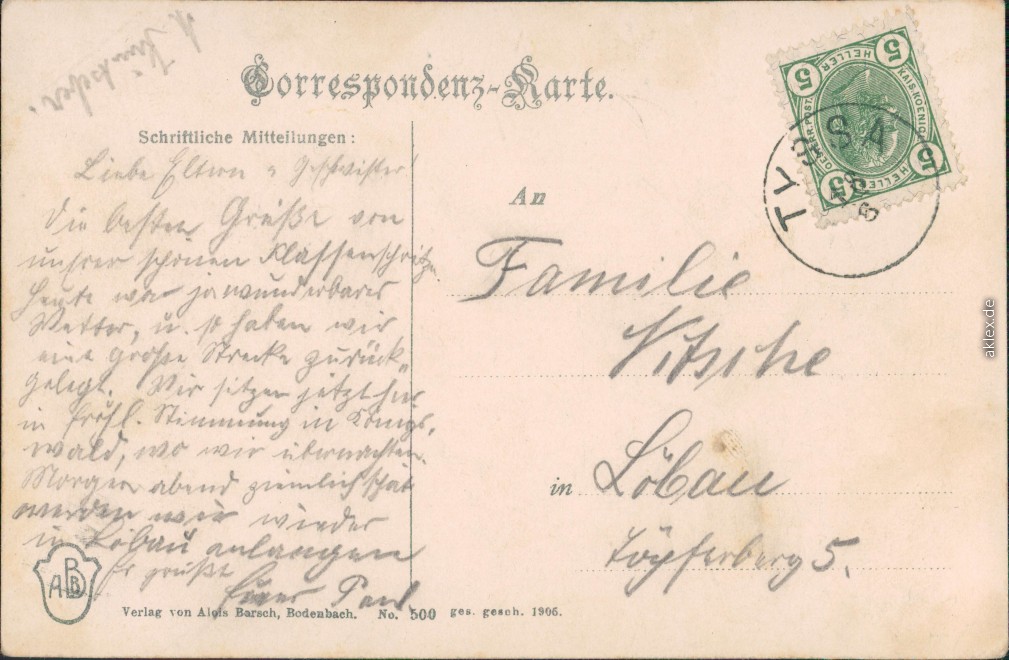 Correspondenz-Karte.
Schriftliche Mitteilungen:
Liebe Eltern u Geschwister!
Die besten Grüße von
unsrer schönen Klassenspritze
heute war ja wunderbares
Wetter, u. so haben wir
eine große Strecke zurück„
gelegt. Wir sitzen jetzt hier
in fröhl. Stimmung in Königs„
wald, wo wir übernachten.
Morgen abend ziemlich spät
werden wir wieder
in Löbau anlangen
Es grüßt
Euer Paul
ABB
Verlag von Alois Barsch, Bodenbach. No. 500 ges. gesch. 1906.
5 HELLER 5
KAIS. KOENIGL.
OESTERR. POST
5 HELLER 5
TYSSA
An
Familie
Nitsche
in Löbau
Töpferberg 5.
aklex.de